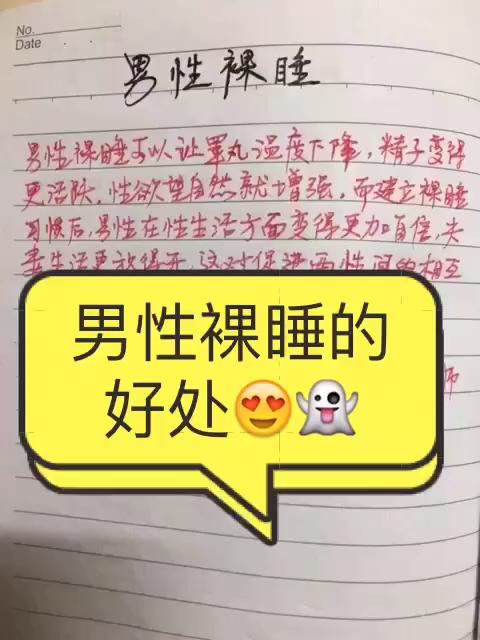 No.
Date
男性裸睡
男性裸睡可以让睾丸温度下降，精子变得
更活跃，性欲望自然就增强，而建立裸睡
习惯后，男性在性生活方面变得更加自信，夫
妻生活更放得开，这对促进两性间的相互
男性裸睡的
好处😍👻
师